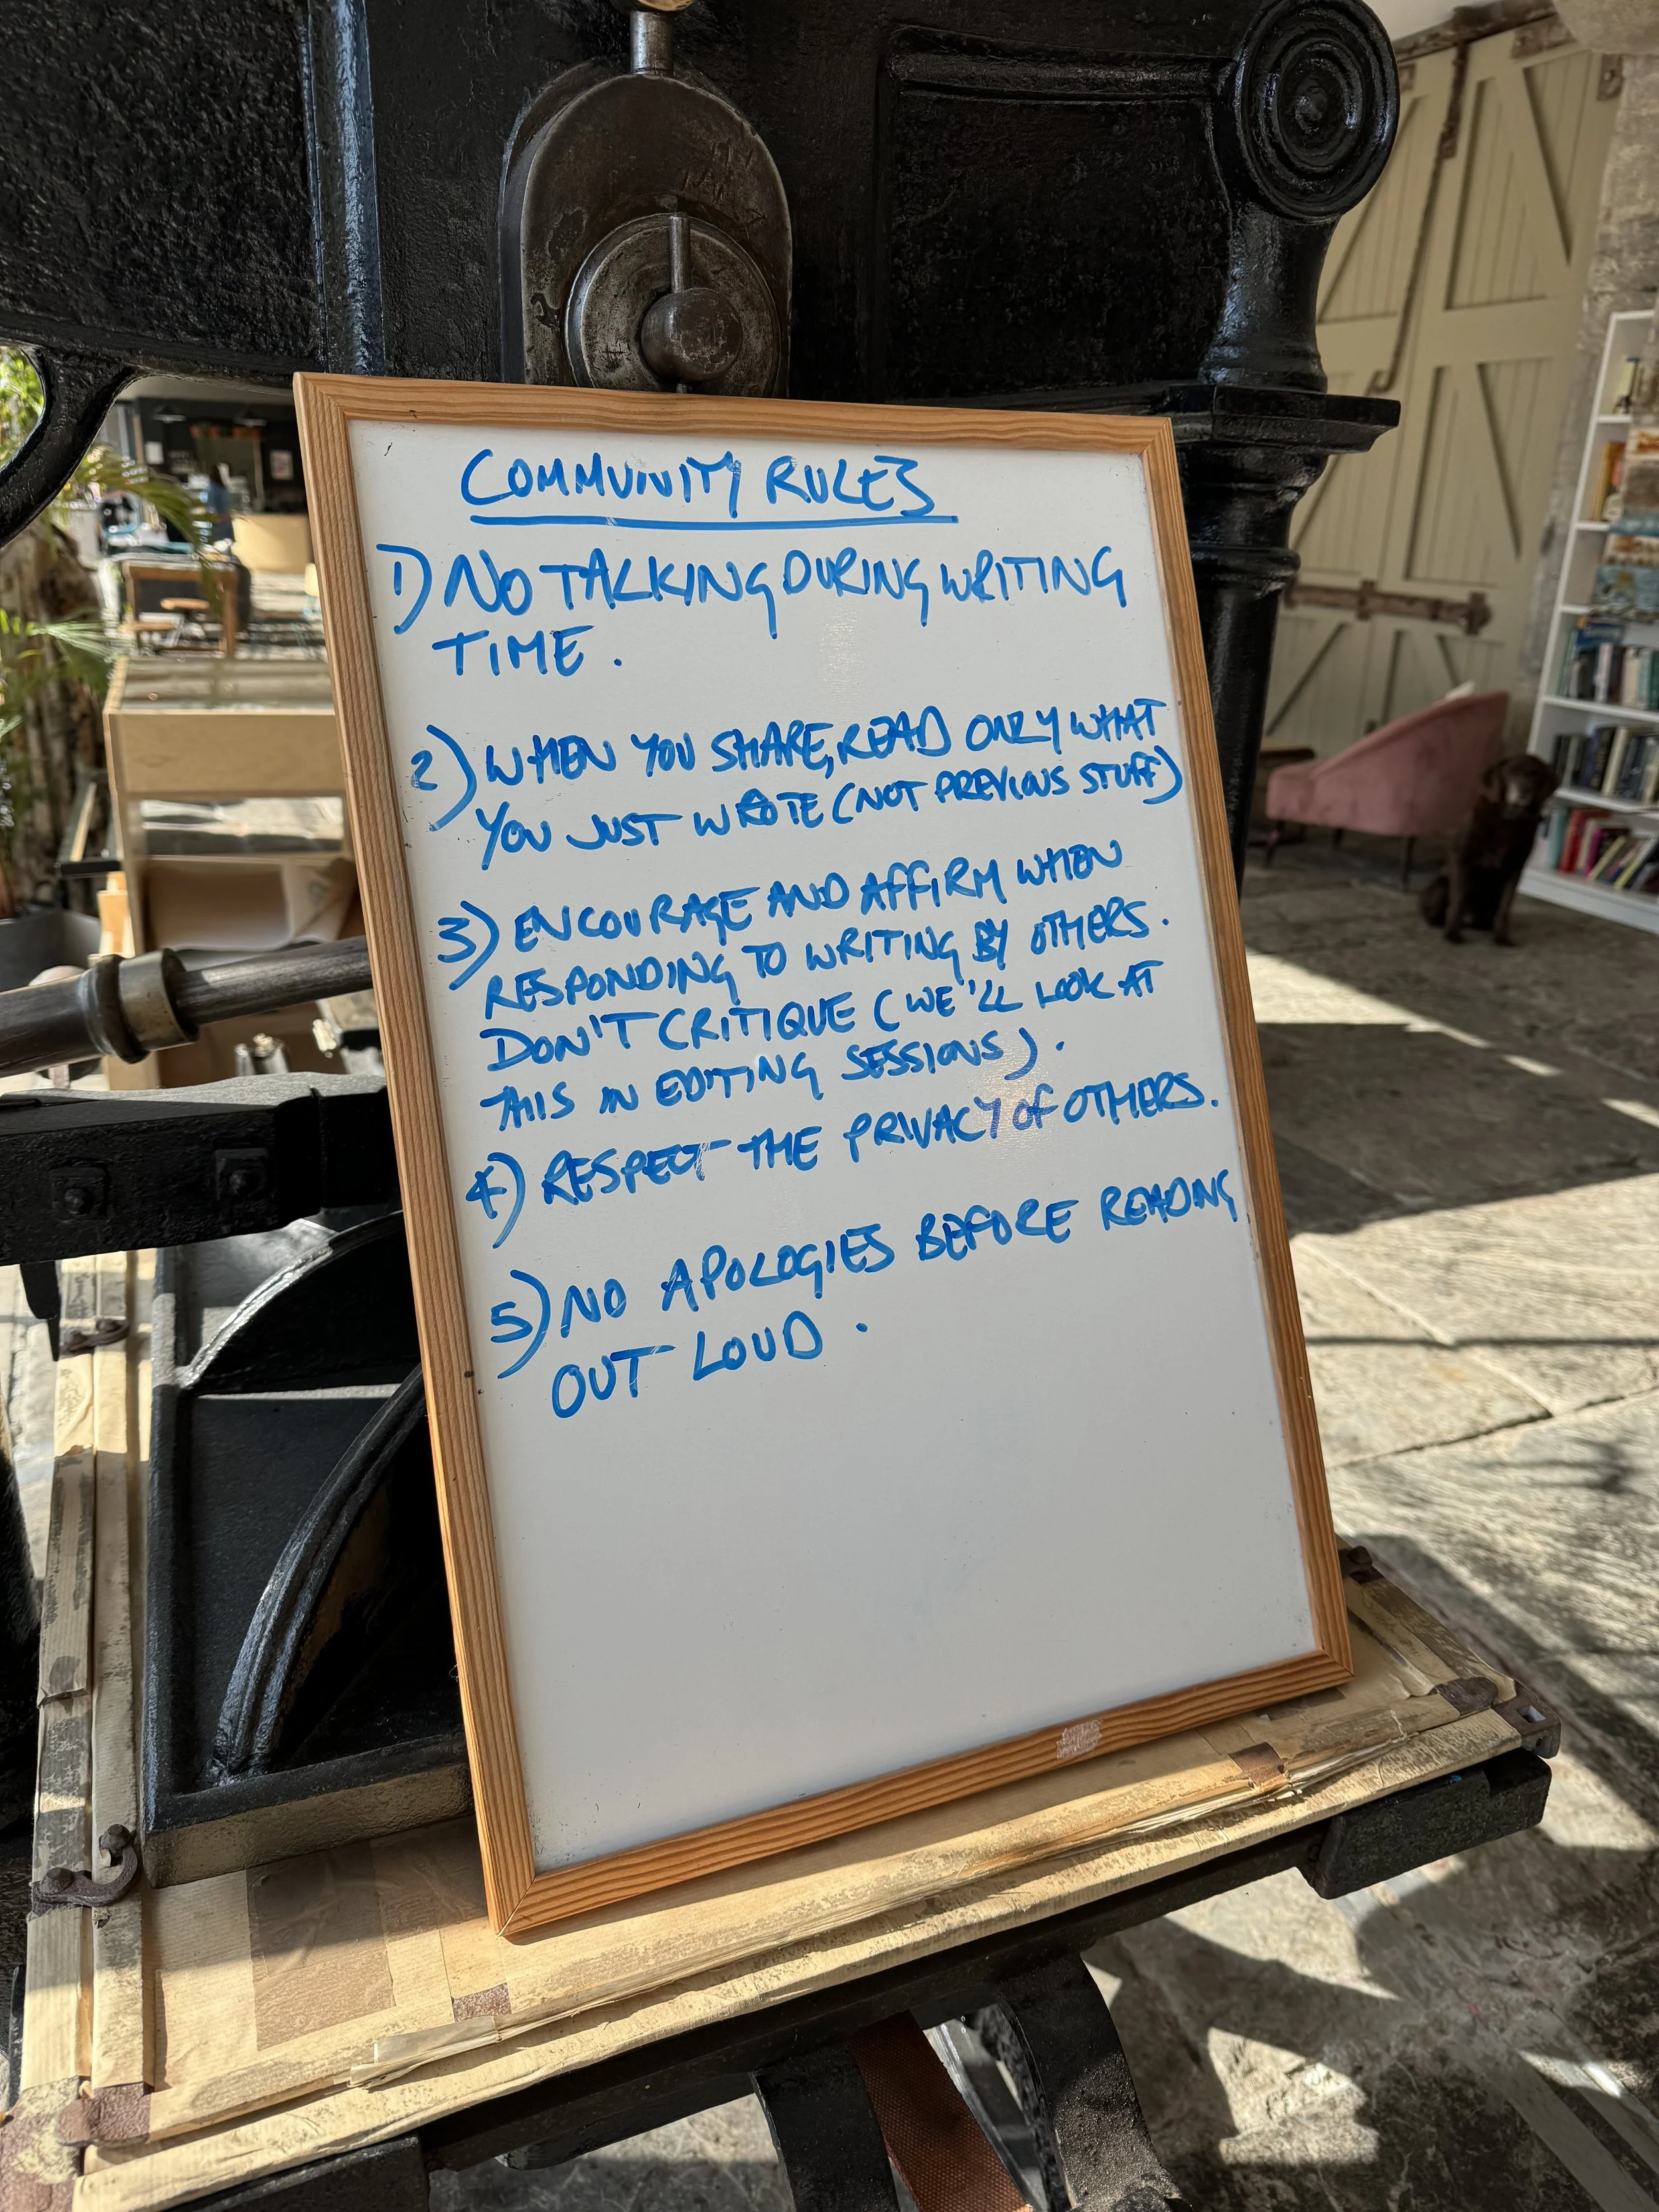 COMMUNITY RULES
1) NO TALKING DURING WRITING
TIME.
2) WHEN YOU SHARE, READ ONLY WHAT
YOU JUST WROTE (NOT PREVIOUS STUFF)
3) ENCOURAGE AND AFFIRM WHEN
RESPONDING TO WRITING BY OTHERS.
DON'T CRITIQUE (WE'LL LOOK AT
THIS IN EDITING SESSIONS).
4) RESPECT THE PRIVACY OF OTHERS.
5) NO APOLOGIES BEFORE READING
OUT LOUD.